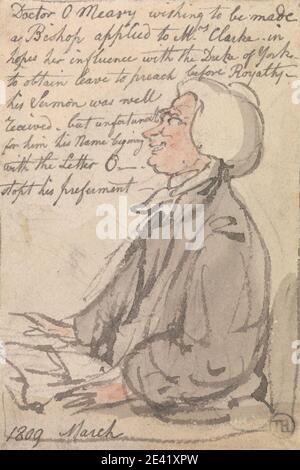 Doctor O Meary wishing to be made
a Bishop applied to Mrs Clarke - in
hopes her influence with the Duke of York
to obtain leave to preach before Royalty -
his Sermon was well
received. but unfortunately
for him his Name begining
with the Letter O —
stopt his preferment —
1809 March
TH
alamy
Image ID: 2E41XPW
www.alamy.com